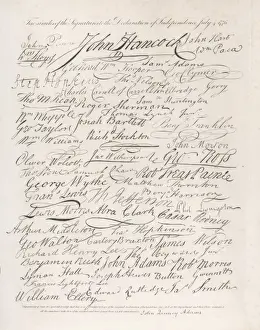 Fac-simile of the Signatures to the Declaration of Independence July 4 1776
John Penn John Hancock John Hart
Wm Hooper Wm Paca
Saml Adams
Geo Clymer
Step Hopkins
Charles Carroll of Carrollton Elbridge Gerry
Tho M:Kean Roger Sherman Sam Huntington
Thomas Lynch Junr
Geo Taylor Josiah Bartlett Benj Franklin
Wm Williams Richd Stockton
John Morton
Oliver Wolcott Jno Witherspoon Geo Ross
Thos Stone Samuel Chase Robt Treat Paine
George Wythe Matthew Thornton
Frans Lewis
Lewis Morris Abra Clark Caesar Rodney
Arthur Middleton
Geo Walton Carter Braxton James Wilson
Richard Henry Lee
Benjamin Rush John Adams Robt Morris
Lyman Hall Joseph Hewes Button Gwinnett
Francis Lightfoot Lee
William Ellery Edward Rutledge Jas Smith
John Quincy Adams